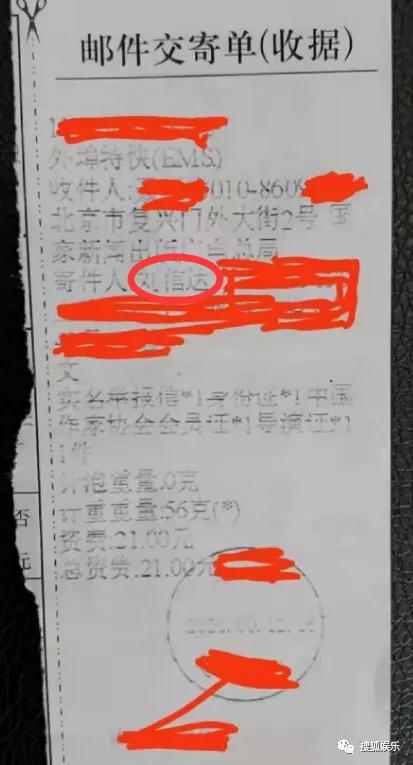 邮件交寄单(收据)
外埠特快(EMS)
收件人: 010-8609
北京市复兴门外大街2号 国
家新闻出版广电总局
寄件人:刘信达
文
实名举报信*1身份证*1中国
作家协会会员证*1导演证*1
1件
计泡重量:0克
计重重量:56克(*)
资费:21.00元
总资费:21.00元
否
元
搜狐娱乐